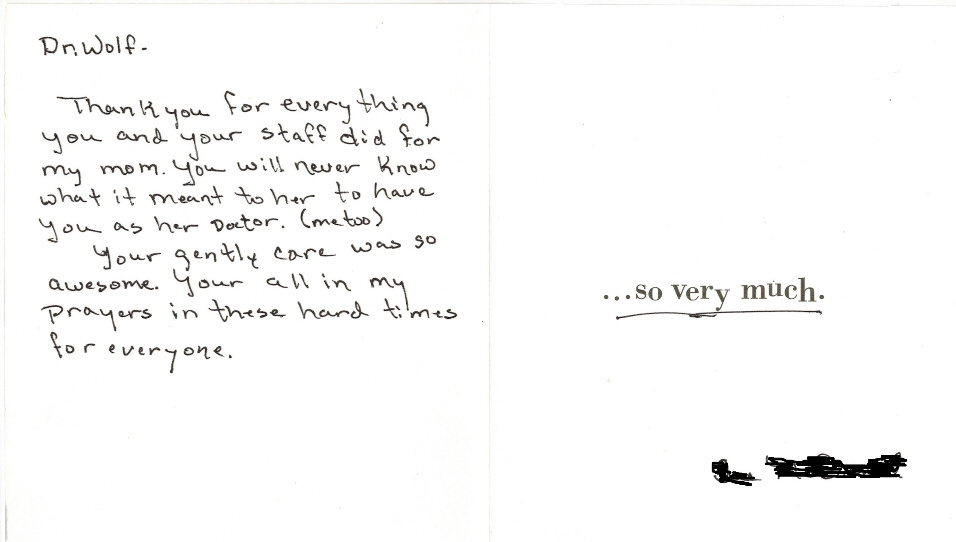 Dr. Wolf-
Thank you for everything
you and your staff did for
my mom. You will never know
what it meant to her to have
you as her Doctor. (me too)
Your gently care was so
awesome. Your all in my
prayers in these hard times
for everyone.
...so very much.